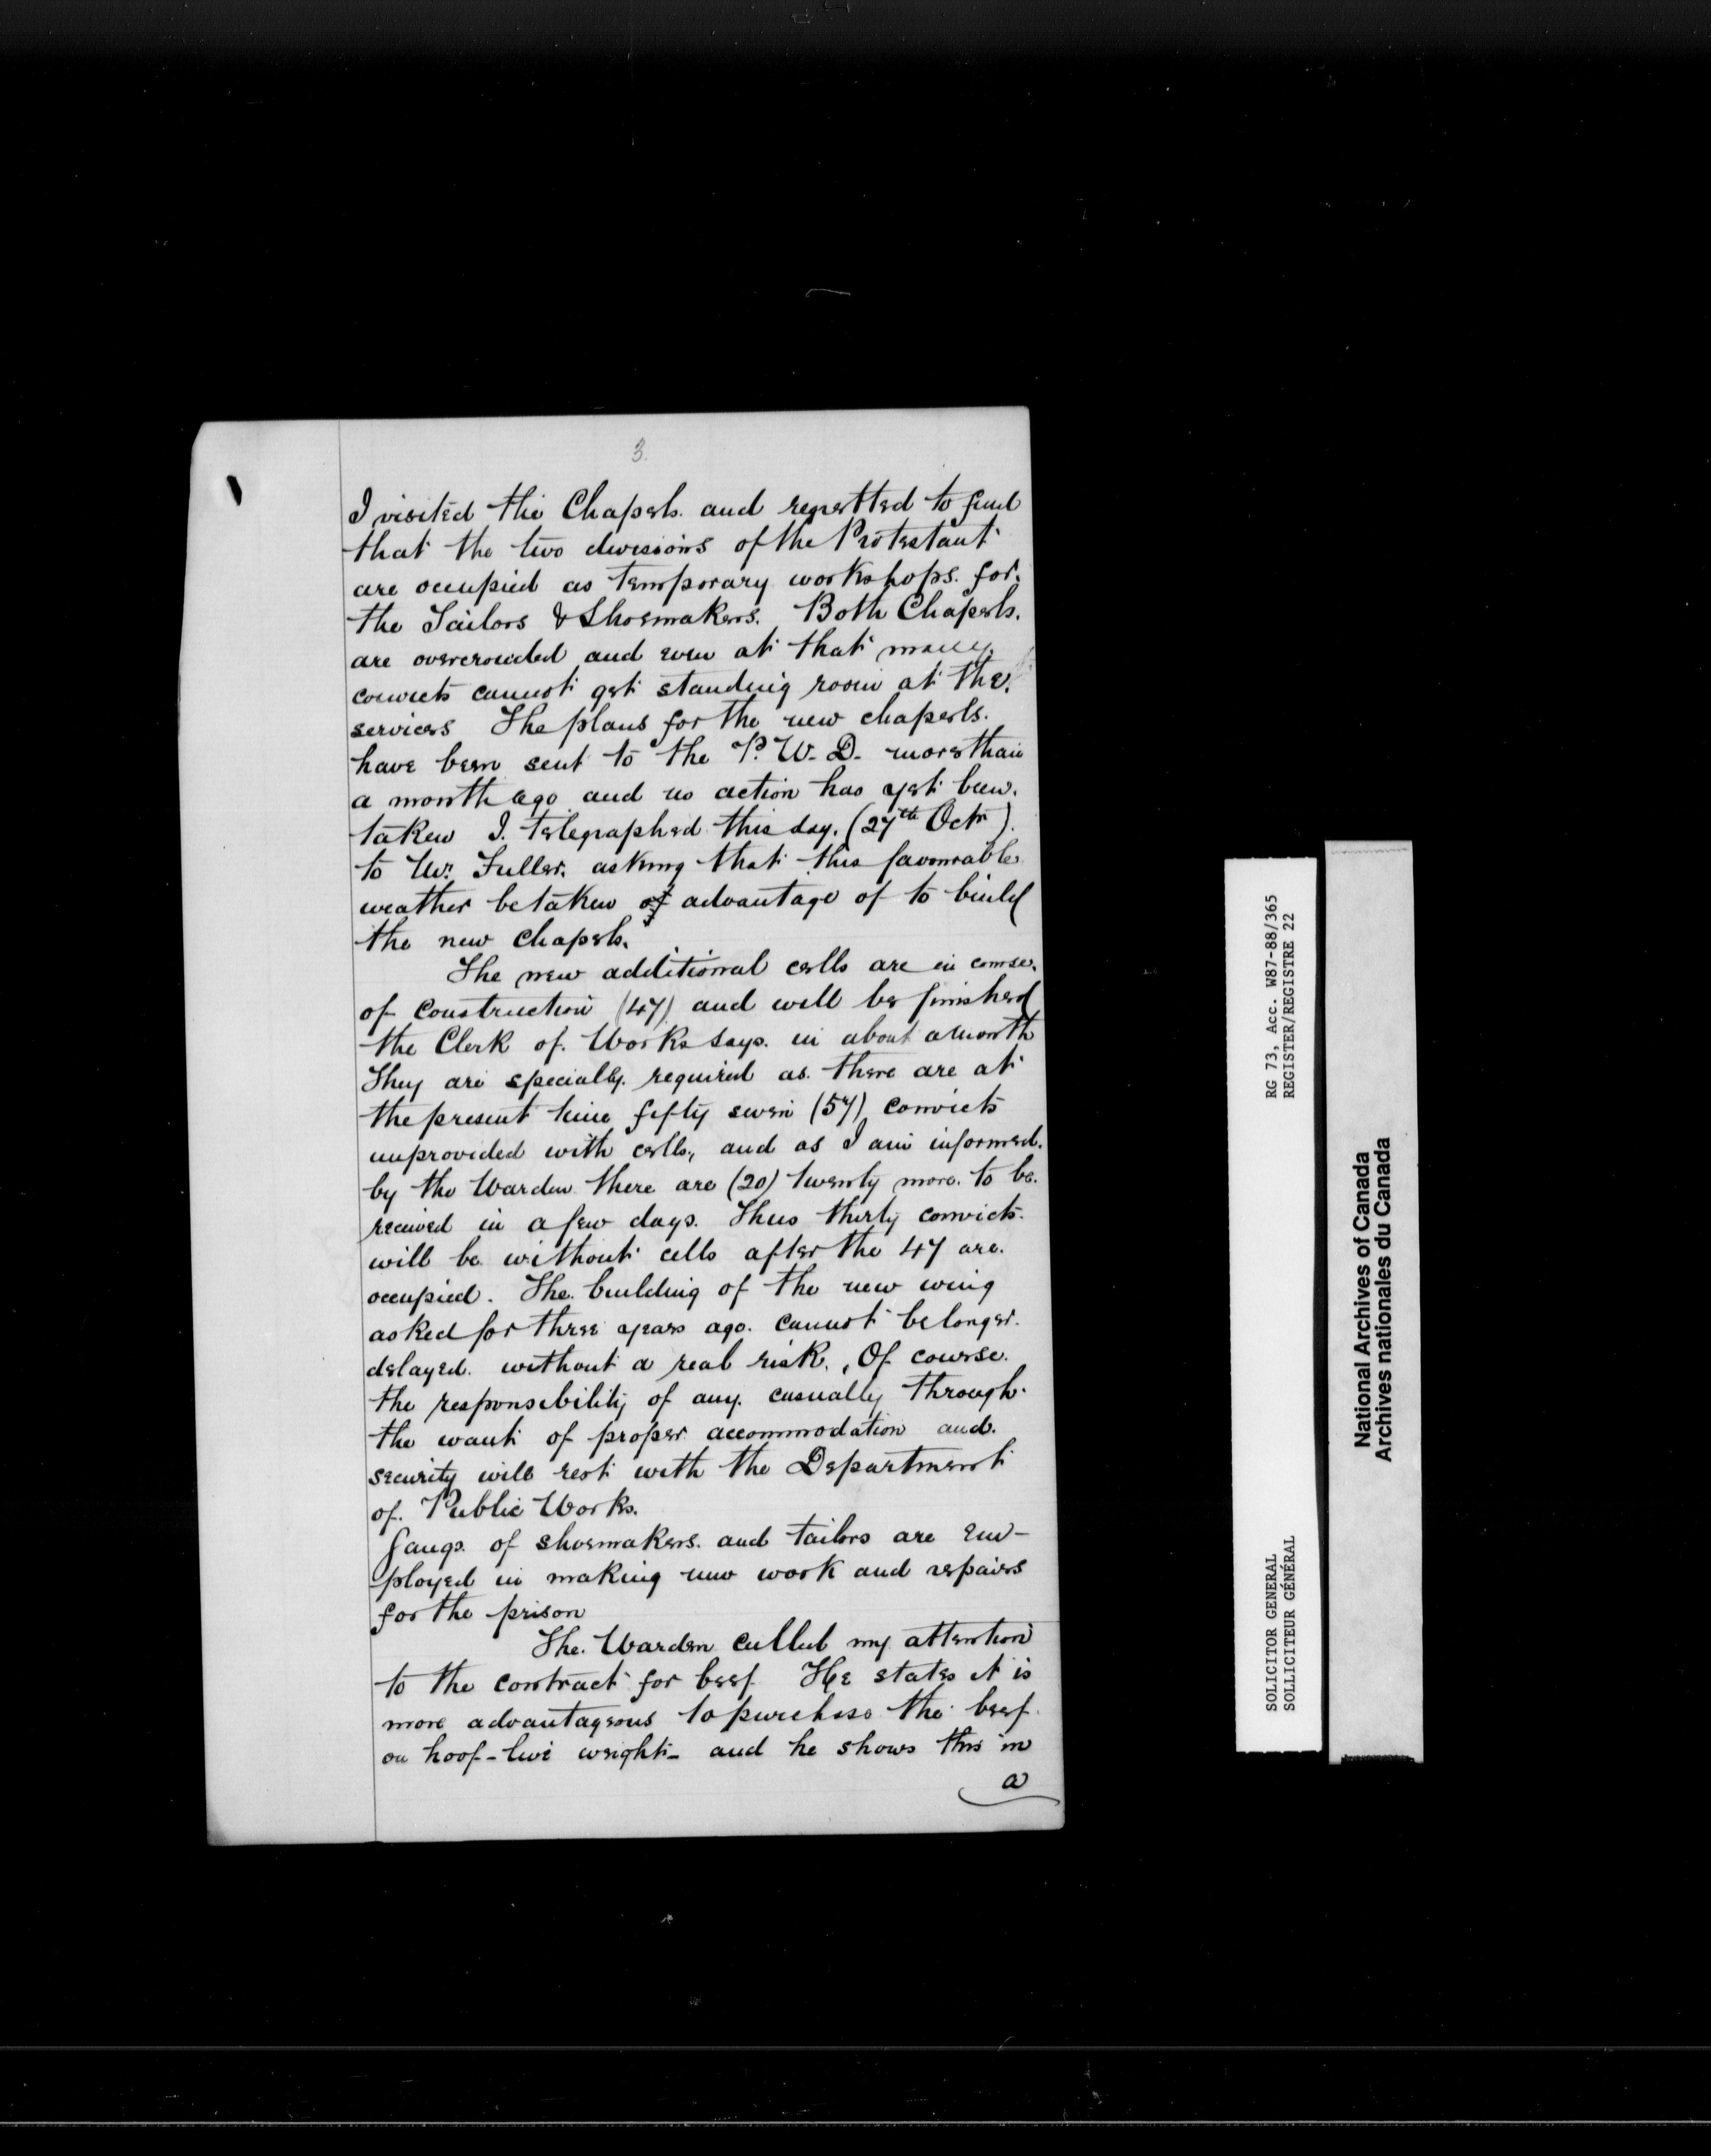 3.
I visited the Chapels. and regretted to find
that the two divisions of the Protestant
are occupied as temporary workshops. for.
the Tailors & Shoemakers. Both Chapels.
are overcrowded and even at that many.
convicts cannot get standing room at the.
services The plans for the new chapels.
have been sent to the P. W. D. more than
a month ago and no action has yet been.
taken I. telegraphed this day. (27th Octr).
to Mr. Fuller. asking that this favourable
weather be taken of advantage of to build
the new chapels.
The new additional cells are in course.
of Construction (47) and will be finished
the Clerk of. Works says. in about a month
They are specially. required as. there are at
the present time fifty seven (57) convicts
unprovided with cells, and as I am informed.
by the Warden there are (20) twenty more. to be.
received in a few days. Thus thirty convicts.
will be without cells after the 47 are.
occupied. The building of the new wing
asked for three years ago. cannot be longer.
delayed. without a real risk. Of course.
the responsibility of any. casualty through
the want of proper accommodation and.
security will rest with the Department
of. Public Works.
Gangs. of shoemakers. and tailors are em-
ployed in making new work and repairs
for the prison
The. Warden called my attention
to the contract for beef He states it is
more advantageous to purchase the beef.
on hoof - live weight - and he shows this in
a
RG 73, Acc. W87-88/365
REGISTER/REGISTRE 22
SOLICITOR GENERAL
SOLLICITEUR GÉNÉRAL
National Archives of Canada
Archives nationales du Canada